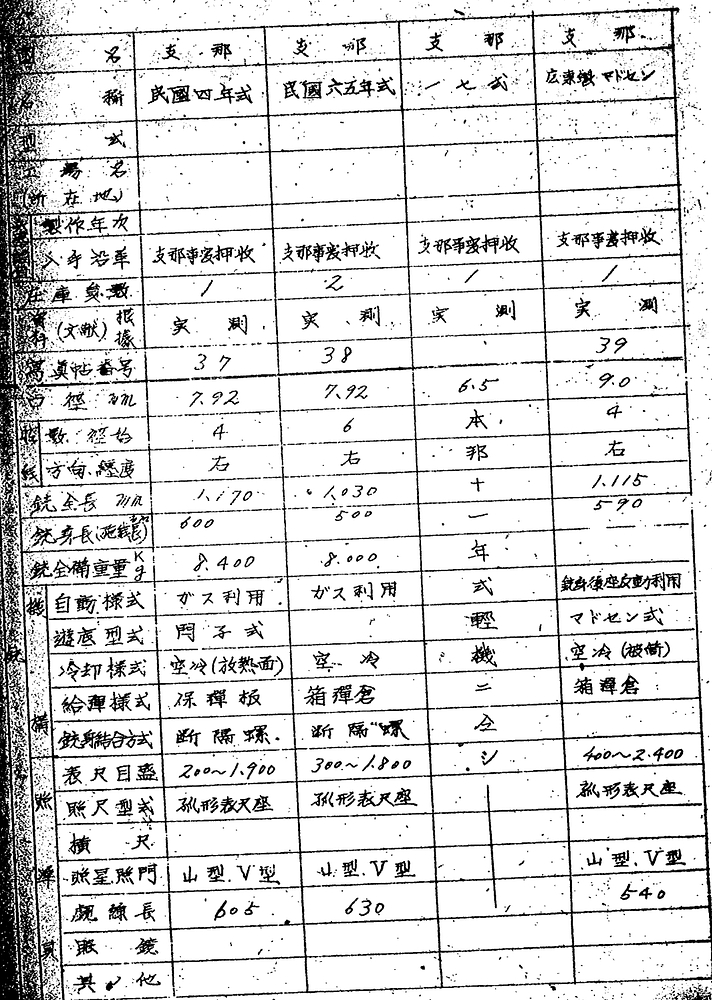 名 支那 支那 支那 支那
名稱 民國四年式 民國六五年式 一七式 広東製マドセン
型式
工場名
(所在地)
製作年次
入手沿革 支那事変押收 支那事変押收 支那事変押收 支那事変押收
在庫員数 1 2 1 1
資料(文献)根據 実測 実測 実測 実測
寫真帖番号 37 38 39
口徑 mm 7.92 7.92 6.5 9.0
4 6 本 4
方向、纏度 右 右 邦 右
銃全長 m 1.170 1.030 十 1.115
銃身長 600 500 一 590
銃全備重量 Kg 8.400 8.000 年
機 自動樣式 ガス利用 ガス利用 式 銃身後座反動利用
遊底型式 閂子式 輕 マドセン式
冷却樣式 空冷(放熱面) 空冷 機 空冷(被筒)
給彈樣式 保彈板 箱彈倉 ニ 箱彈倉
構 銃身結合方式 断隔螺 断隔螺 仝
表尺目盛 200～1.900 300～1.800 シ 400～2.400
照 照尺型式 弧形表尺座 弧形表尺座 弧形表尺座
横尺
準 照星照門 山型、V型 山型、V型 山型、V型
視線長 605 630 540
眼鏡
具 其ノ他